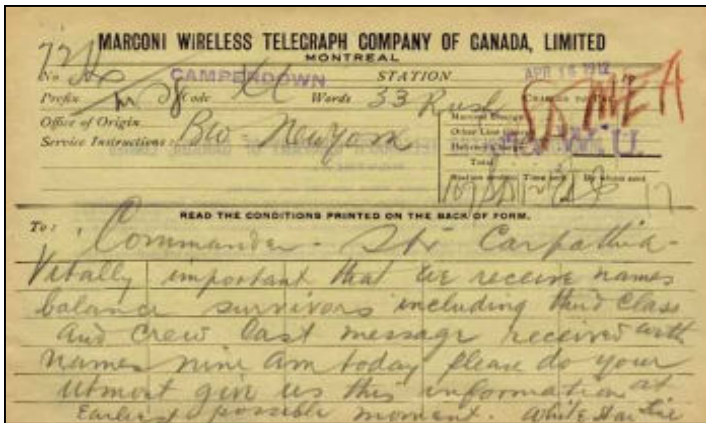 MARCONI WIRELESS TELEGRAPH COMPANY OF CANADA, LIMITED
MONTREAL
No CAMPERDOWN STATION APR 16 1912 19
Prefix Code Words 33 Rush
Office of Origin Bw- New York
Service Instructions:
Other Line
Total
READ THE CONDITIONS PRINTED ON THE BACK OF FORM.
To: Commander - Str Carpathia -
Vitally important that we receive names
balance survivors including third class
and crew last message received with
names nine am today please do your
utmost give us this information at
Earliest possible moment. White Star Line